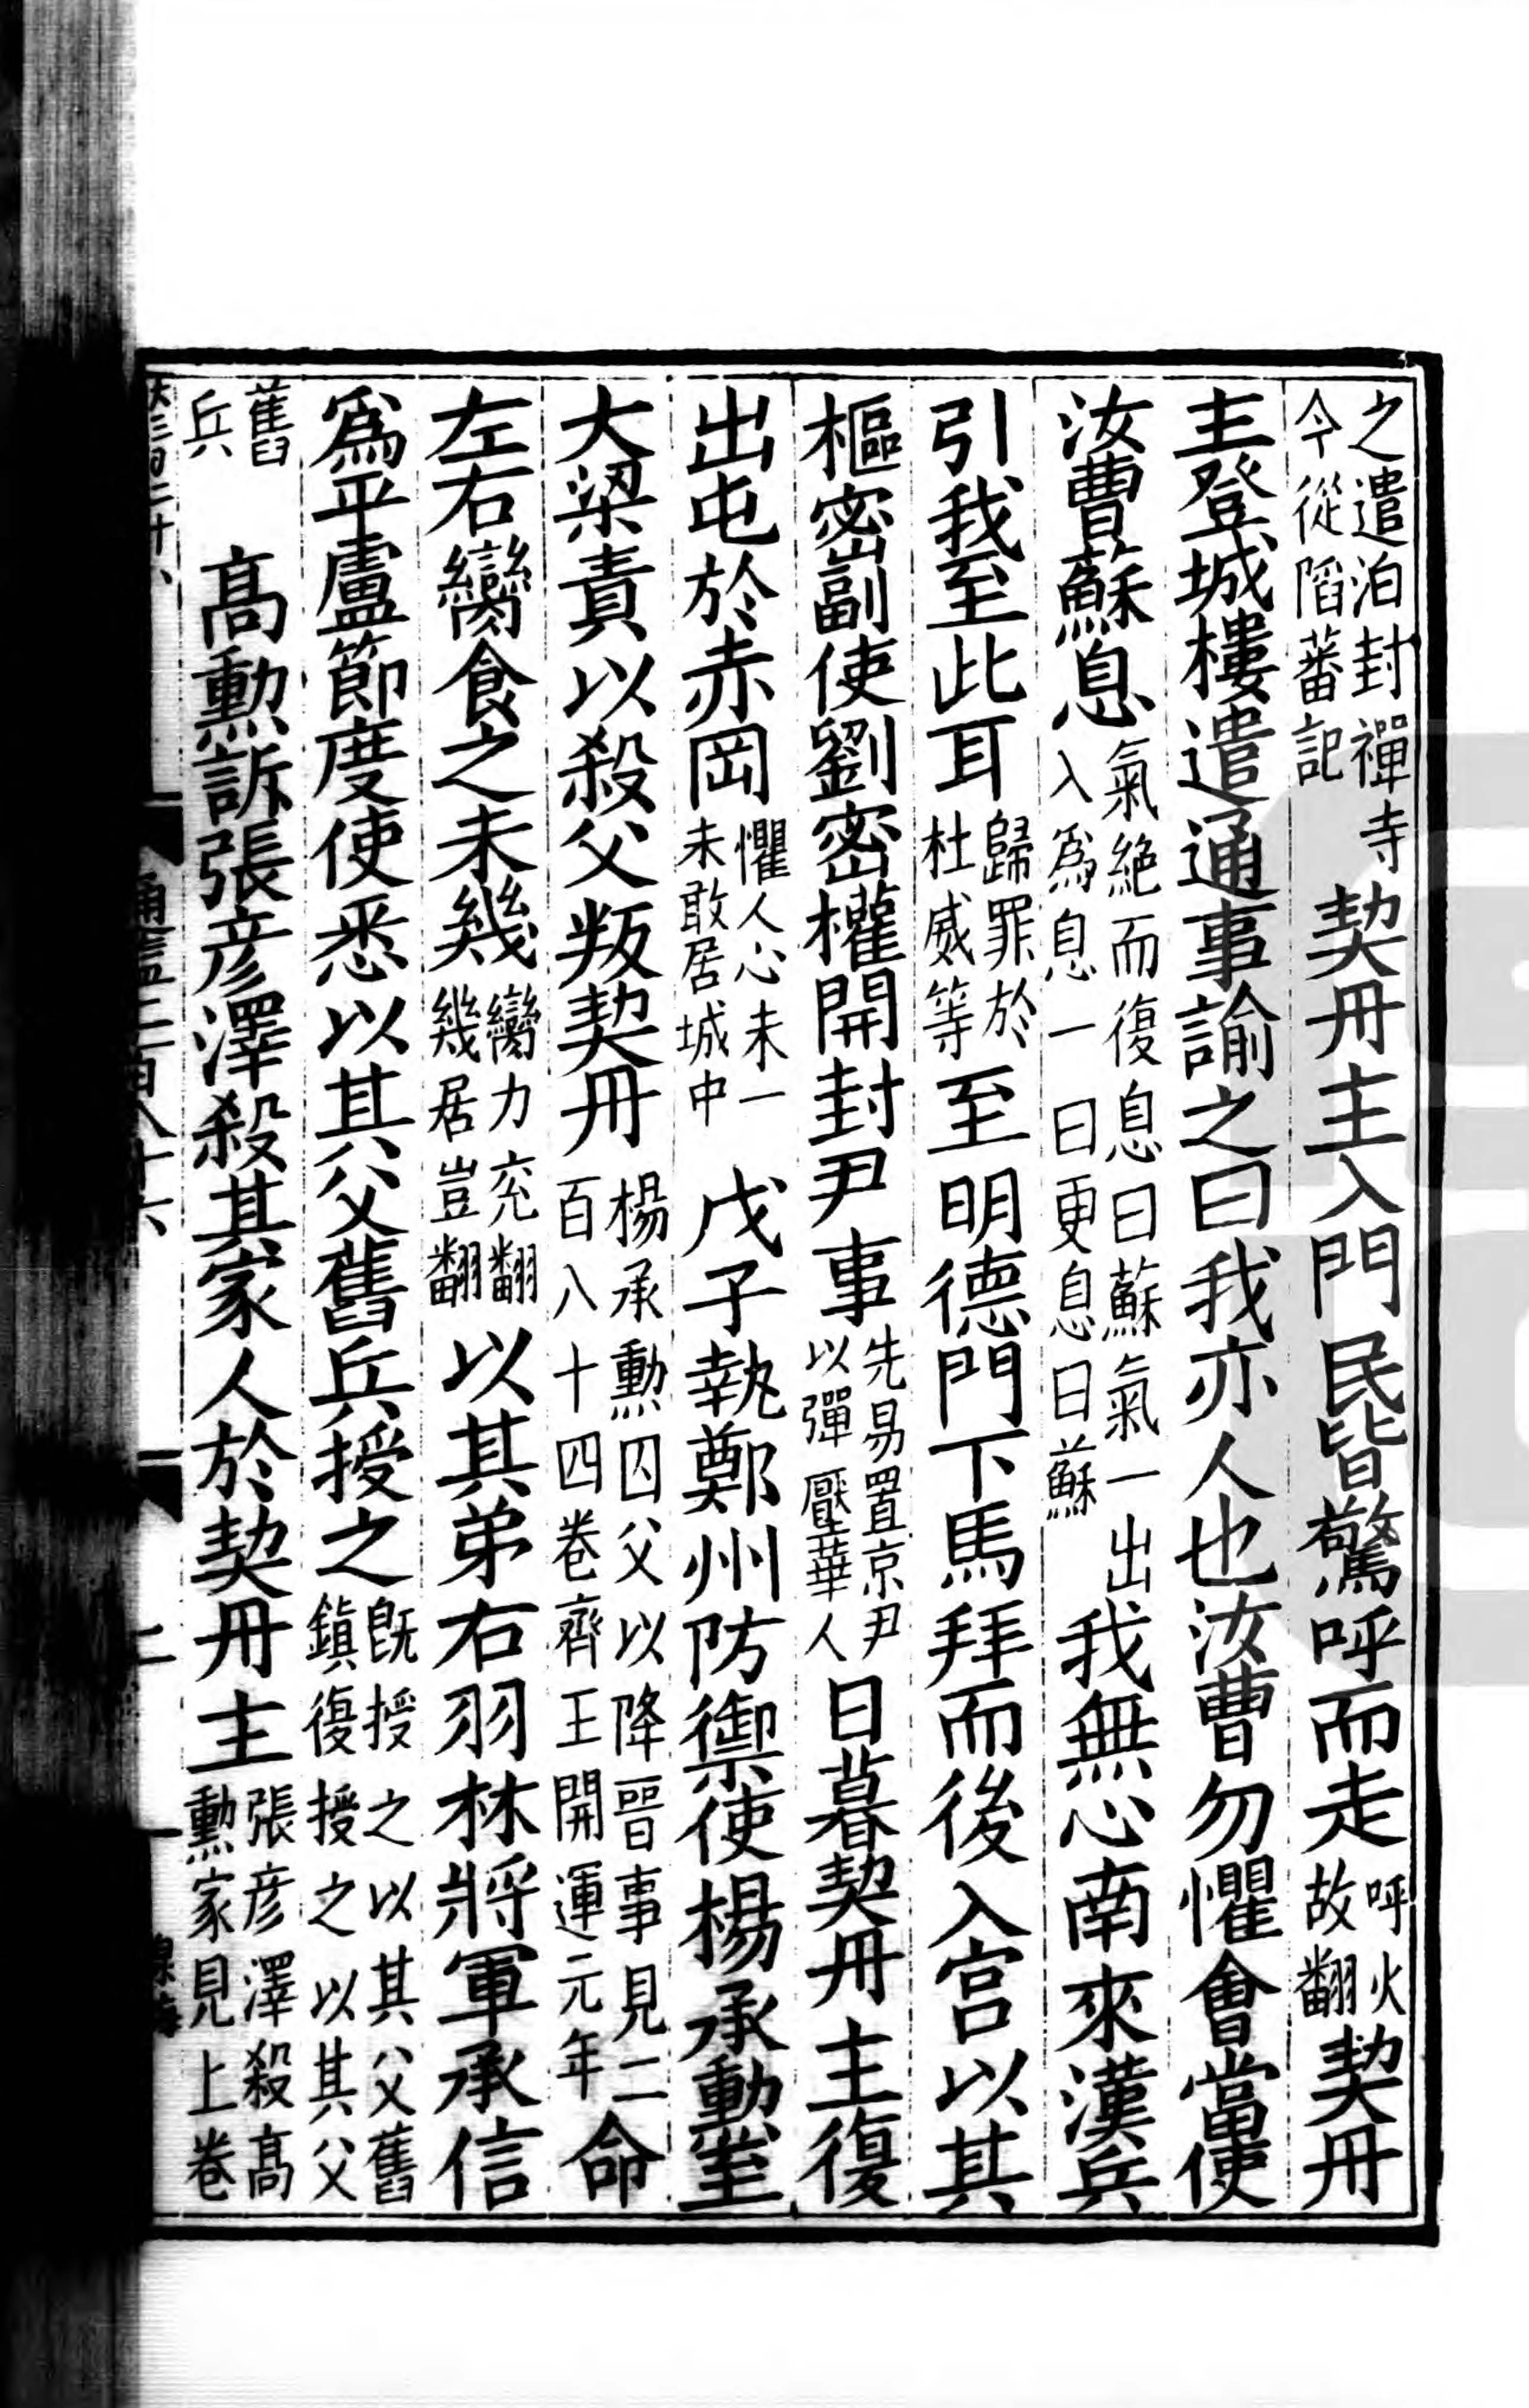 之遣泊封禪寺
今從陷蕃記
契丹主入門民皆驚呼而走
呼火
故翻
契丹
主登城樓遣通事諭之曰我亦人也汝曹勿懼會當使
汝曹蘇息
氣絶而復息曰蘇氣一出
入爲息一曰更息曰蘇
我無心南來漢兵
引我至此耳
歸罪於
杜威等
至明德門下馬拜而後入宫以其
樞密副使劉密權開封尹事
先易置京尹
以彈壓華人
日暮契丹主復
出屯於赤岡
懼人心未一
未敢居城中
戊子執鄭州防禦使楊承勳至
大梁責以殺父叛契丹
楊承勳囚父以降晉事見二
百八十四卷齊王開運元年
命
左右臠食之未幾
臠力兖翻
幾居豈翻
以其弟右羽林將軍承信
爲平盧節度使悉以其父舊兵授之
旣授之以其父舊
鎮復授之以其父
舊
兵
高勳訴張彦澤殺其家人於契丹主
張彦澤殺高
勳家見上卷
通鑑二百八十六
二